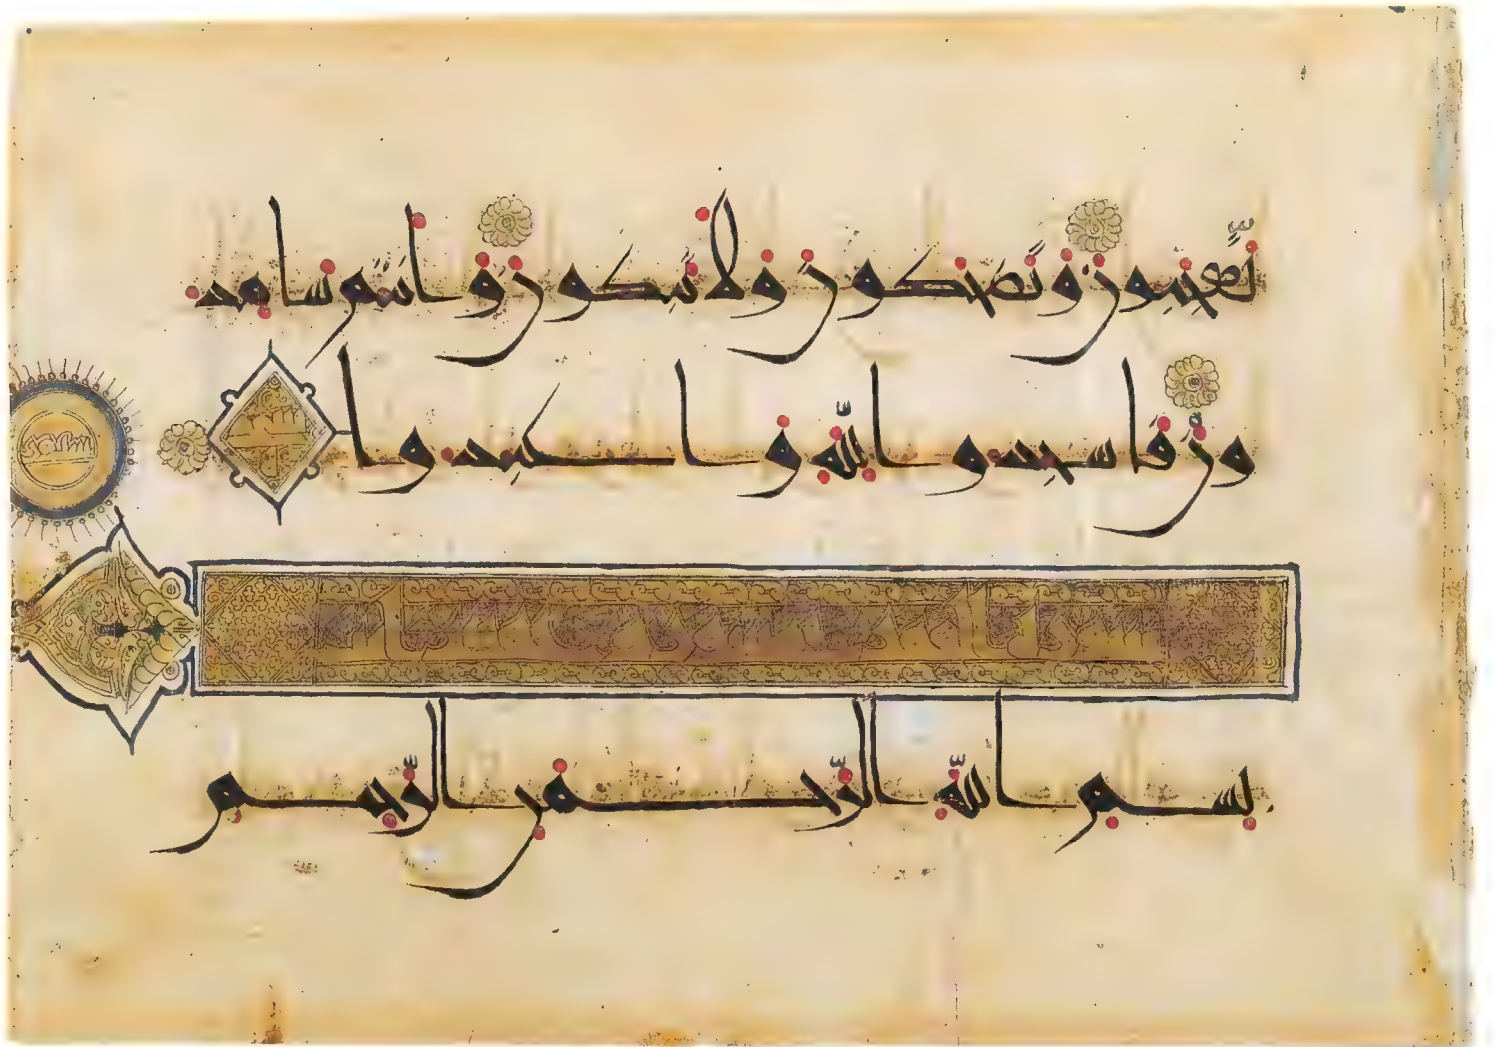 تعجبون وتضحكون ولا تبكون وانتم سامد
ون فاسجدوا لله واعبدوا
بسم الله الرحمن الرحيم